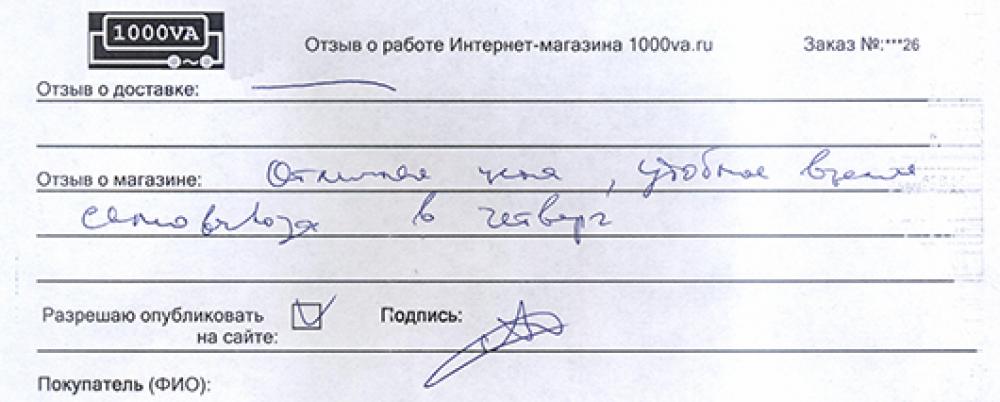 1000VA
Отзыв о работе Интернет-магазина 1000va.ru
Заказ №:***26
Отзыв о доставке:
Отзыв о магазине: Отличная цена, удобное время
самовывоза в четверг
Разрешаю опубликовать
на сайте:
Подпись:
Покупатель (ФИО):